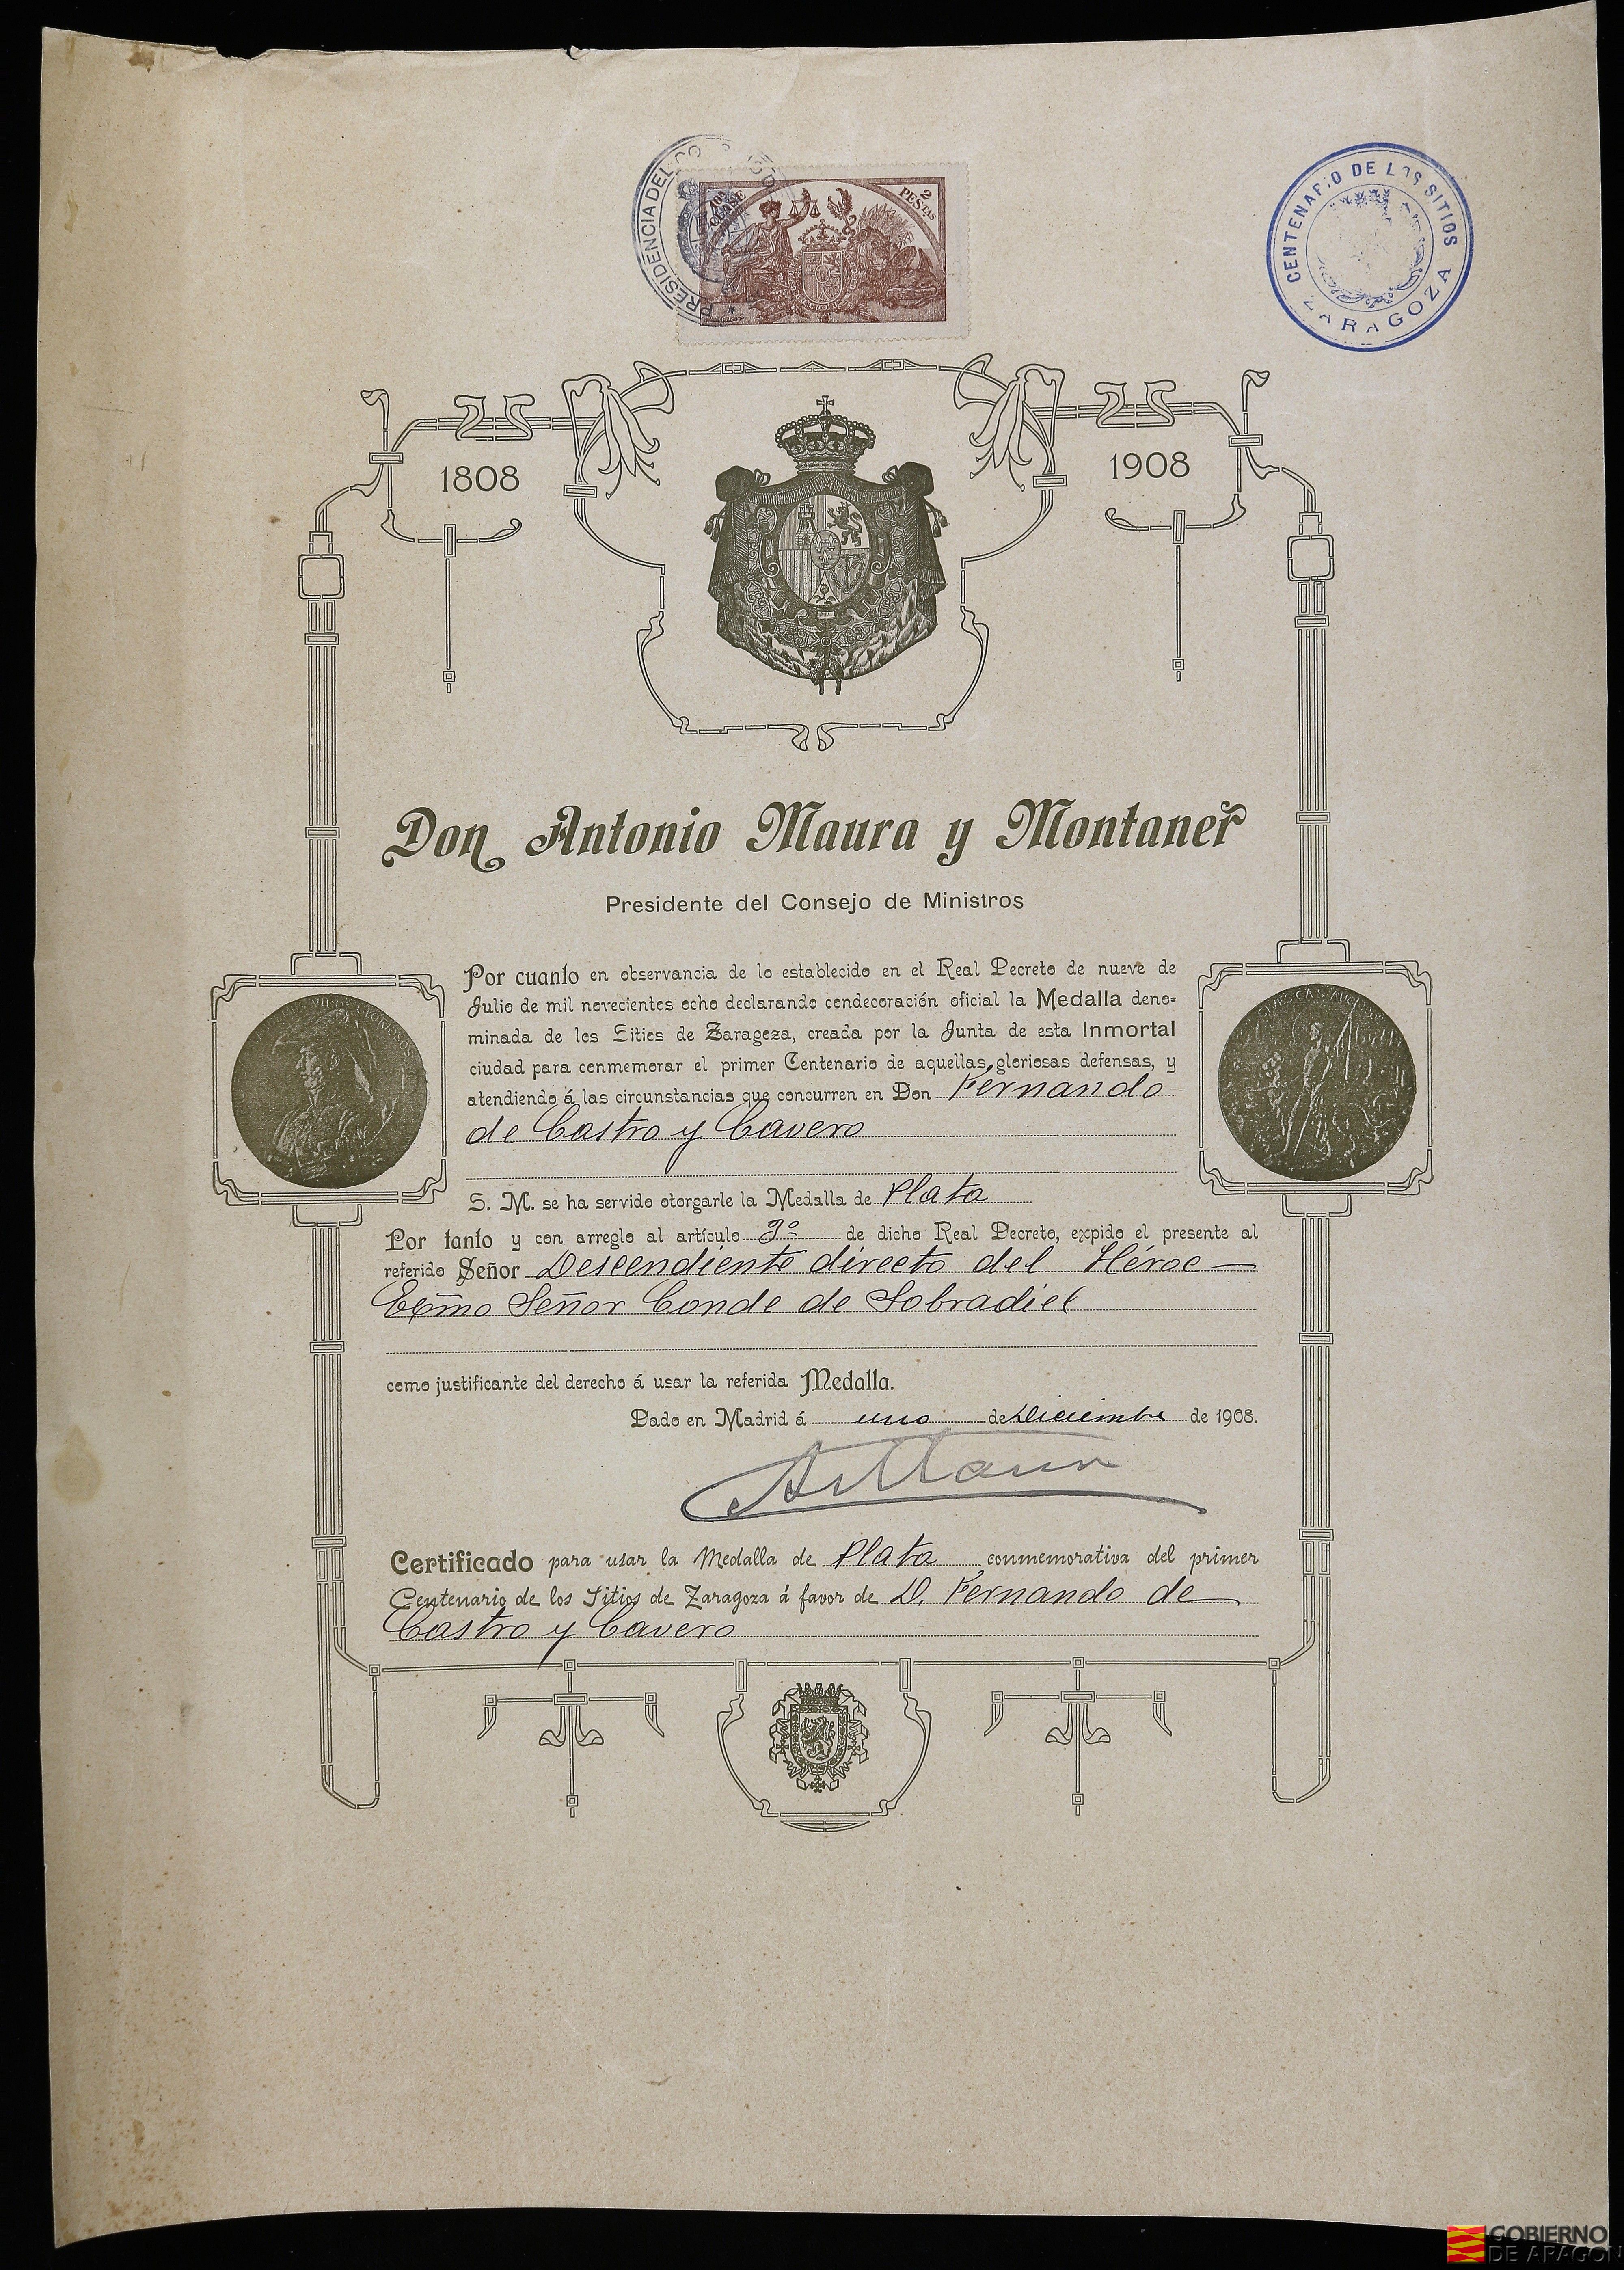 PRESIDENCIA DEL CO
10ª CLASE
2 PESTAS
CENTENARIO DE LOS SITIOS
ZARAGOZA
1808
1908
Don Antonio Maura y Montaner
Presidente del Consejo de Ministros
Por cuanto en observancia de lo establecido en el Real Decreto de nueve de
Julio de mil novecientos ocho declarando condecoración oficial la Medalla deno-
minada de los Sitios de Zaragoza, creada por la Junta de esta Inmortal
ciudad para conmemorar el primer Centenario de aquellas gloriosas defensas, y
atendiendo á las circunstancias que concurren en Don Fernando
de Castro y Cavero
S. M. se ha servido otorgarle la Medalla de Plata
Por tanto y con arreglo al artículo 3º de dicho Real Decreto, expido el presente al
referido Señor Descendiente directo del Héroe —
Excmo Señor Conde de Sobradiel
como justificante del derecho á usar la referida Medalla.
Dado en Madrid á uno de Diciembre de 1908.
A Maura
Certificado para usar la Medalla de Plata conmemorativa del primer
Centenario de los Sitios de Zaragoza á favor de D. Fernando de
Castro y Cavero
GOBIERNO
DE ARAGON